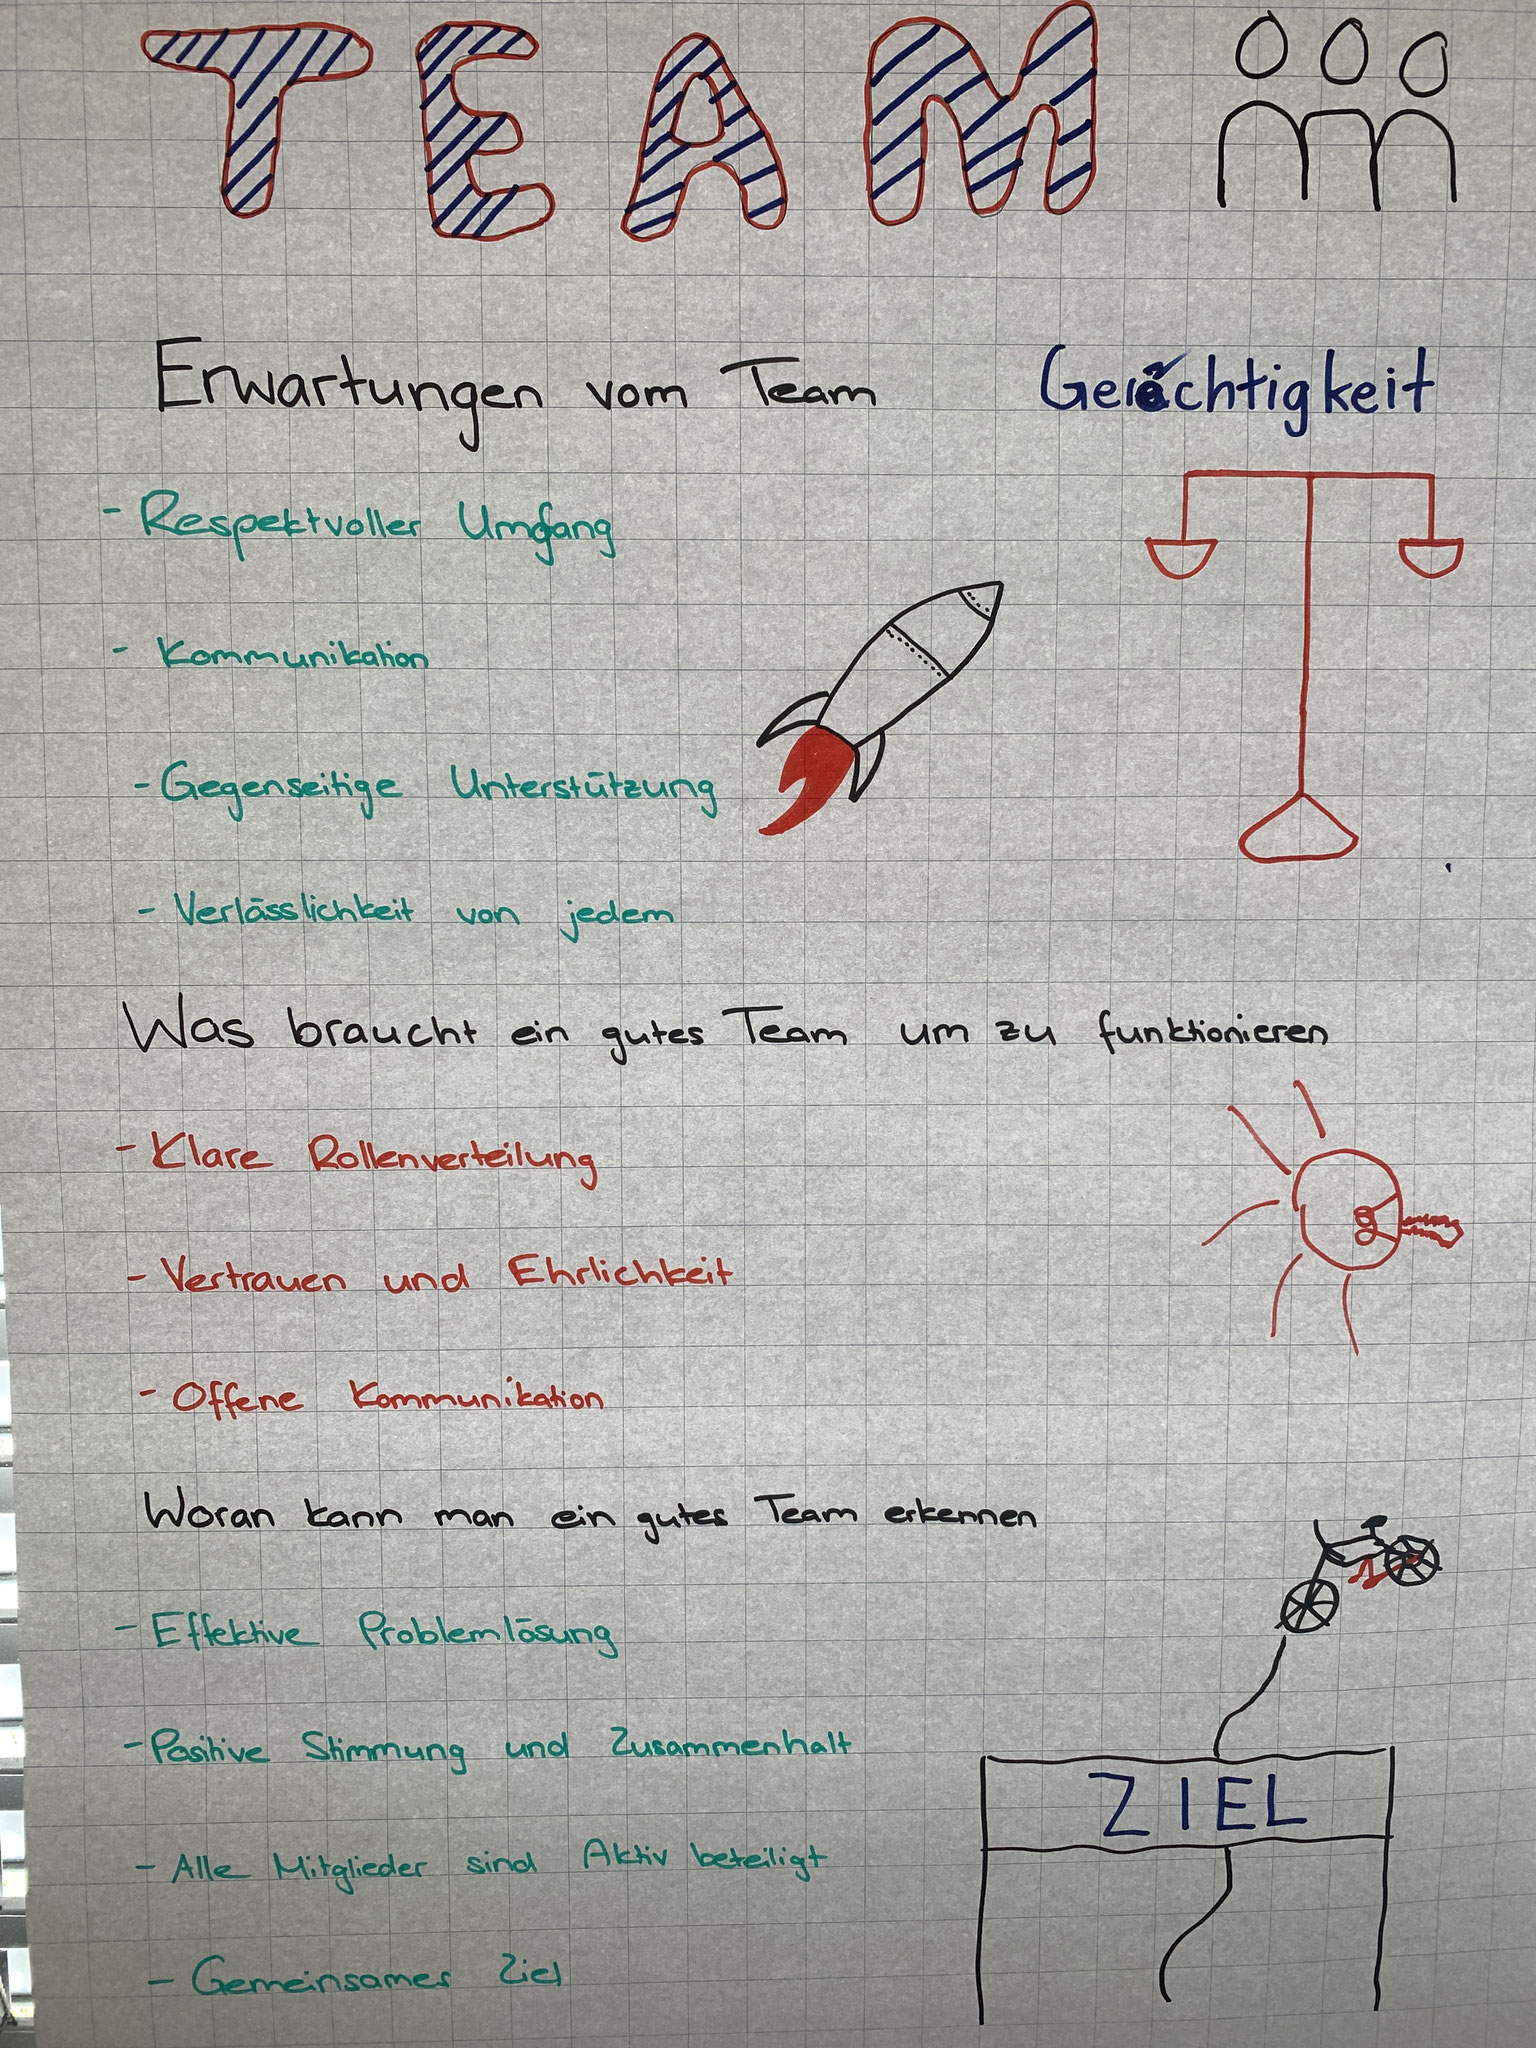 TEAM
Erwartungen vom Team
Gerechtigkeit
- Respektvoller Umgang
- Kommunikation
- Gegenseitige Unterstützung
- Verlässlichkeit von jedem
Was braucht ein gutes Team um zu funktionieren
- Klare Rollenverteilung
- Vertrauen und Ehrlichkeit
- Offene Kommunikation
Woran kann man ein gutes Team erkennen
- Effektive Problemlösung
- Positive Stimmung und Zusammenhalt
ZIEL
- Alle Mitglieder sind Aktiv beteiligt
- Gemeinsames Ziel